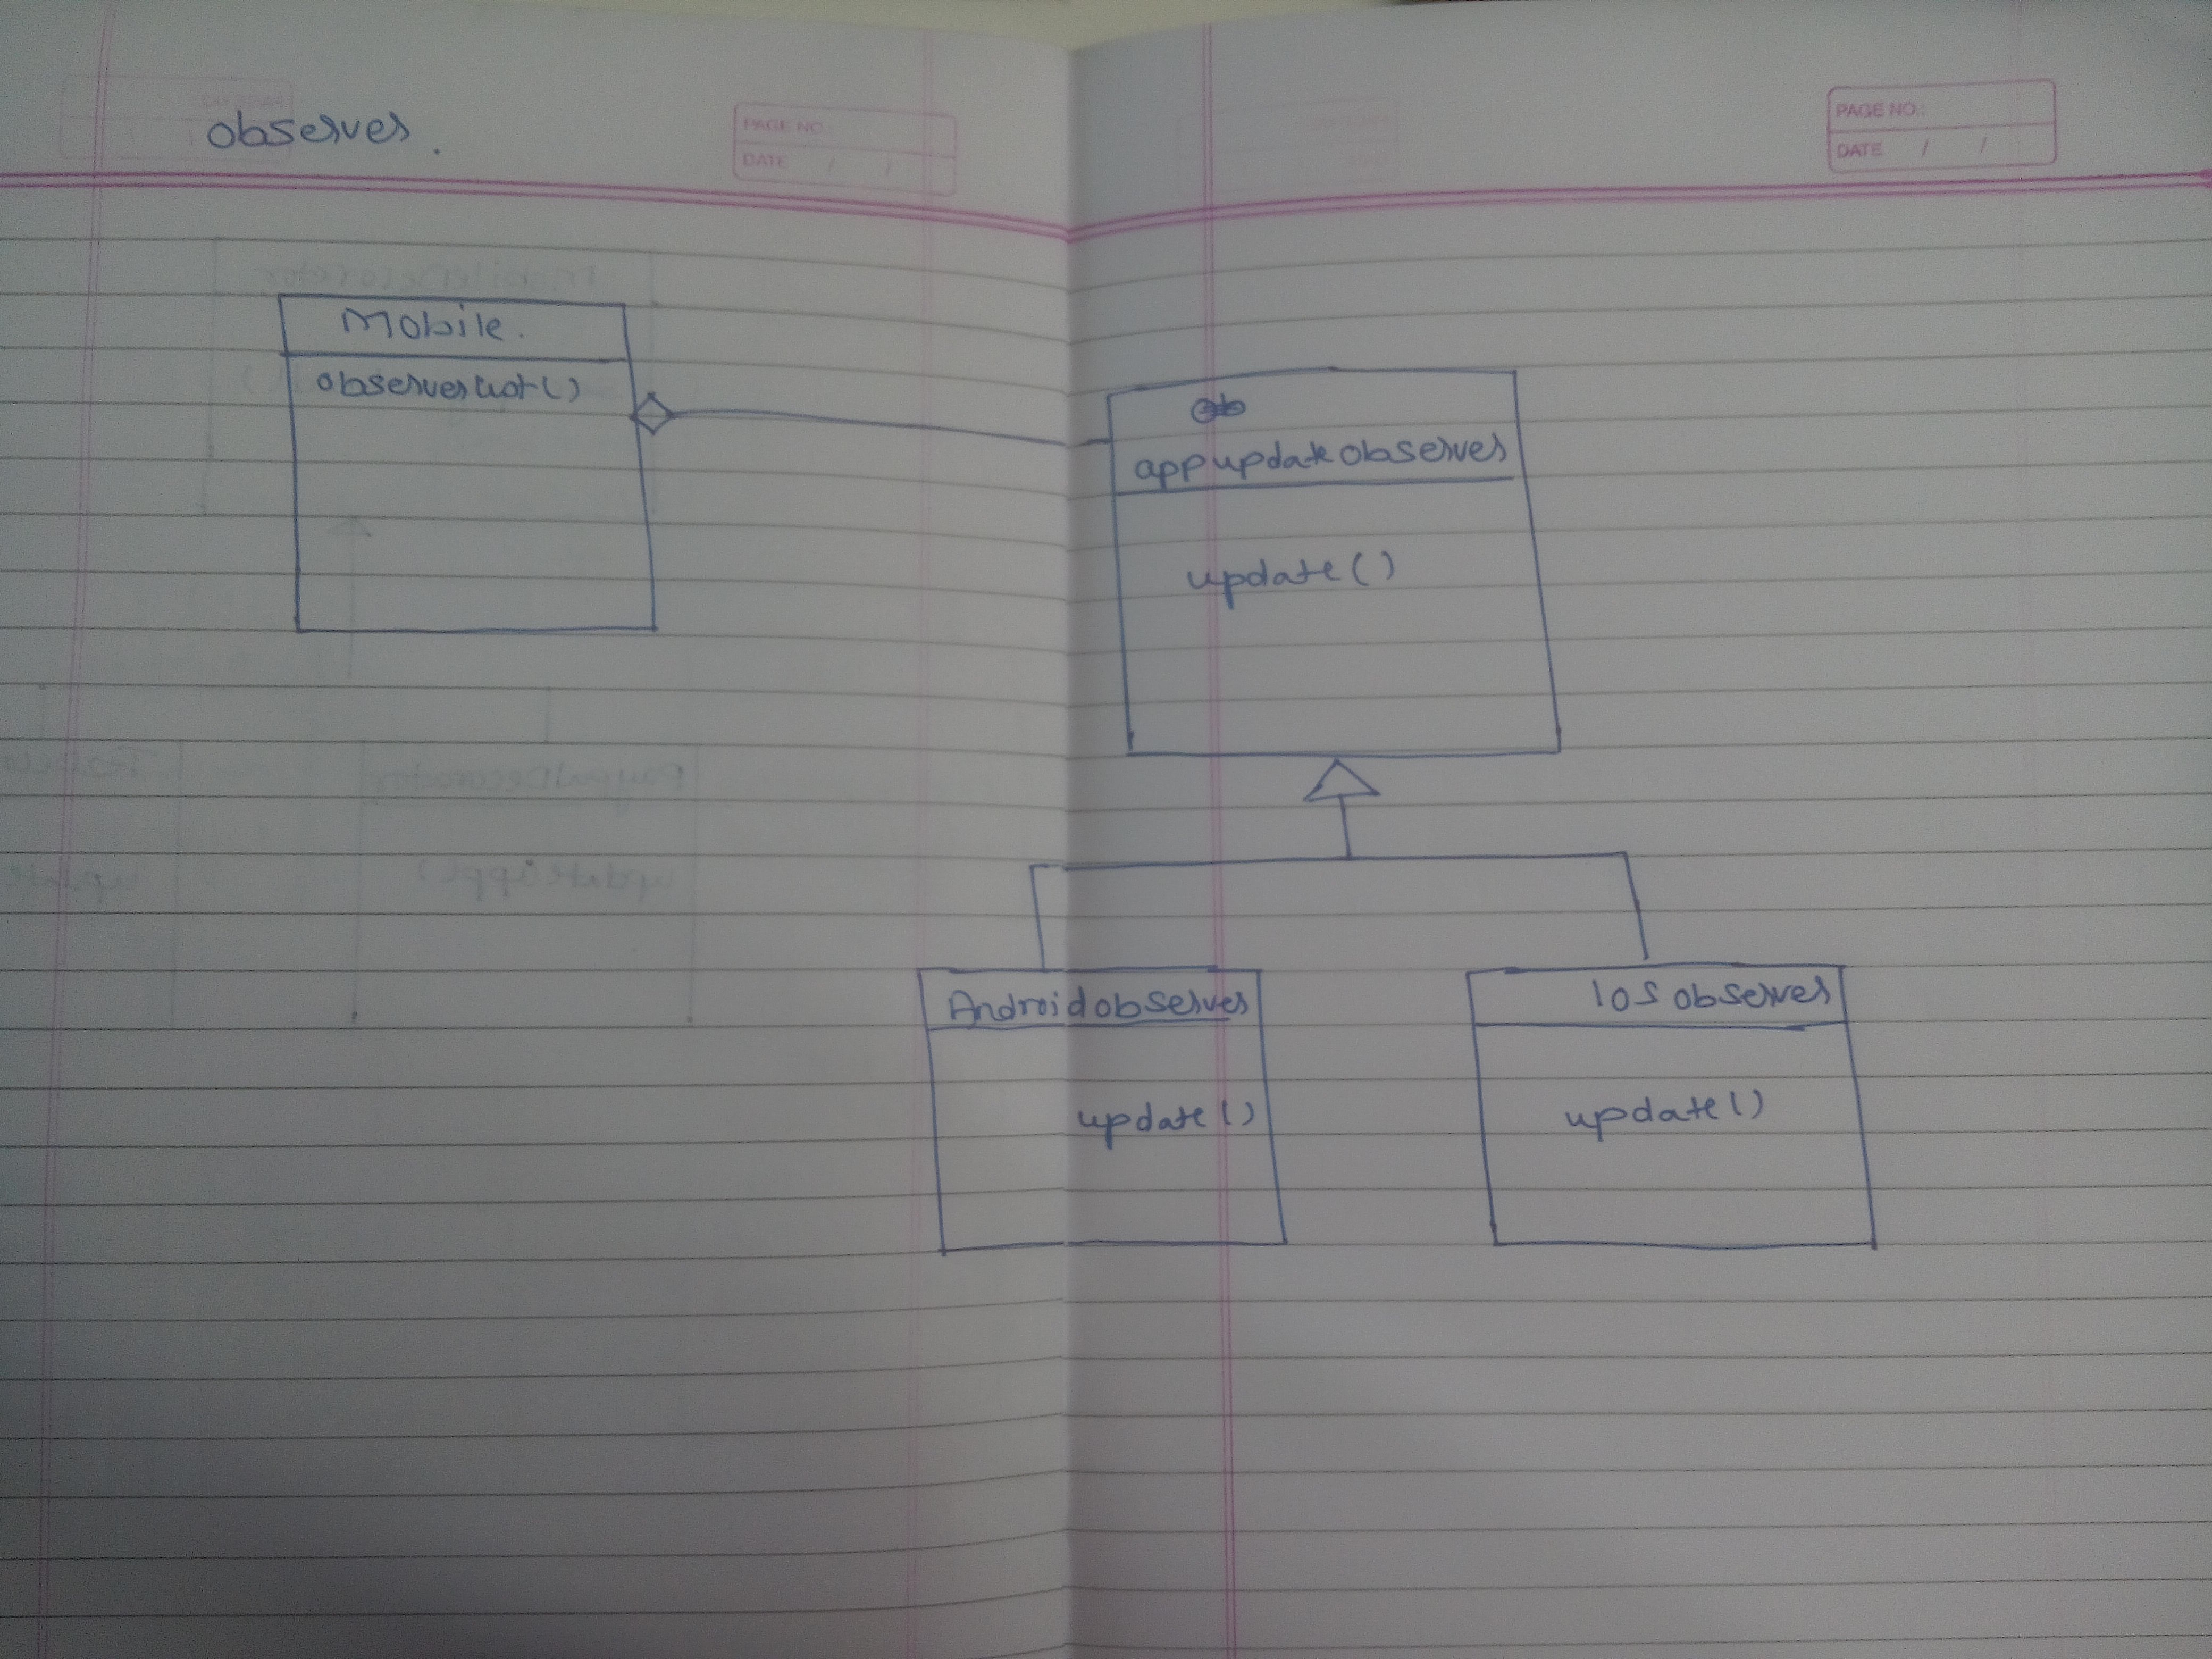 observer.
PAGE NO.:
DATE / /
PAGE NO.:
DATE / /
Mobile.
appupdateobserver
update()
Androidobserver
update()
IOS observer
update()